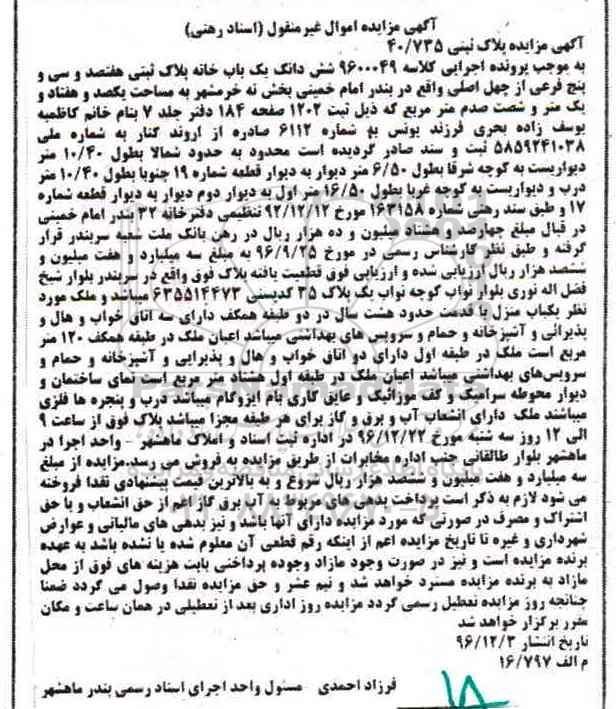 آگهی مزایده اموال غیرمنقول (اسناد رهنی)
آگهی مزایده پلاک ثبتی ۴۰/۷۳۵
به موجب پرونده اجرایی کلاسه ۹۶۰۰۰۴۹ شش دانگ یک باب خانه پلاک ثبتی هفتصد و سی و
پنج فرعی از چهل اصلی واقع در بندر امام خمینی بخش نه خرمشهر به مساحت یکصد و هفتاد و
یک متر و شصت صدم متر مربع که ذیل ثبت ۱۲۰۲ صفحه ۱۸۴ دفتر جلد ۷ بنام خانم کاظمیه
یوسف زاده بحری فرزند یونس به شماره ۶۱۱۲ صادره از اروند کنار به شماره ملی
۵۸۵۹۲۴۱۰۳۸ ثبت و سند صادر گردیده است محدود به حدود شمالا بطول ۱۰/۴۰ متر
دیواریست به کوچه شرقا بطول ۶/۵۰ متر دیوار به دیوار قطعه شماره ۱۹ جنوبا بطول ۱۰/۴۰ متر
درب و دیواریست به کوچه غربا بطول ۱۶/۵۰ متر اول به دیوار دوم دیوار به دیوار قطعه شماره
۱۷ و طبق سند رهنی شماره ۱۶۳۱۵۸ مورخ ۹۲/۱۲/۱۲ تنظیمی دفترخانه ۳۲ بندر امام خمینی
در قبال مبلغ چهارصد و هشتاد میلیون و ده هزار ریال در رهن بانک ملت شعبه سربندر قرار
گرفته و طبق نظر کارشناس رسمی در مورخ ۹۶/۹/۲۵ به مبلغ سه میلیارد و هفت میلیون و
ششصد هزار ریال ارزیابی شده و ارزیابی فوق قطعیت یافته پلاک فوق واقع در سربندر بلوار شیخ
فضل اله نوری بلوار نواب کوچه نواب یک پلاک ۳۵ کدپستی ۶۳۵۵۱۴۴۷۳ میباشد و ملک مورد
نظر یکباب منزل با قدمت حدود هشت سال در دو طبقه همکف دارای سه اتاق خواب و هال و
پذیرائی و آشپزخانه و حمام و سرویس های بهداشتی میباشد اعیان ملک در طبقه همکف ۱۲۰ متر
مربع است ملک در طبقه اول دارای دو اتاق خواب و هال و پذیرایی و آشپزخانه و حمام و
سرویس‌های بهداشتی میباشد اعیان ملک در طبقه اول هشتاد متر مربع است نمای ساختمان و
دیوار محوطه سرامیک و کف موزائیک و عایق کاری بام ایزوگام میباشد درب و پنجره ها فلزی
میباشند ملک دارای انشعاب آب و برق و گاز برای هر طبقه مجزا میباشد پلاک فوق از ساعت ۹
الی ۱۲ روز سه شنبه مورخ ۹۶/۱۲/۲۲ در اداره ثبت اسناد و املاک ماهشهر - واحد اجرا در
ماهشهر بلوار طالقانی جنب اداره مخابرات از طریق مزایده به فروش می رسد.مزایده از مبلغ
سه میلیارد و هفت میلیون و ششصد هزار ریال شروع و به بالاترین قیمت پیشنهادی نقدا فروخته
می شود لازم به ذکر است پرداخت بدهی های مربوط به آب برق گاز اعم از حق انشعاب و یا حق
اشتراک و مصرف در صورتی که مورد مزایده دارای آنها باشد و نیز بدهی های مالیاتی و عوارض
شهرداری و غیره تا تاریخ مزایده اعم از اینکه رقم قطعی آن معلوم شده یا نشده باشد به عهده
برنده مزایده است و نیز در صورت وجود مازاد وجوده پرداختی بابت هزینه های فوق از محل
مازاد به برنده مزایده مسترد خواهد شد و نیم عشر و حق مزایده نقدا وصول می گردد ضمنا
چنانچه روز مزایده تعطیل رسمی گردد مزایده روز اداری بعد از تعطیلی در همان ساعت و مکان
مقرر برگزار خواهد شد
تاریخ انتشار ۹۶/۱۲/۳
م الف ۱۶/۷۹۷
فرزاد احمدی مسئول واحد اجرای اسناد رسمی بندر ماهشهر
۱۸